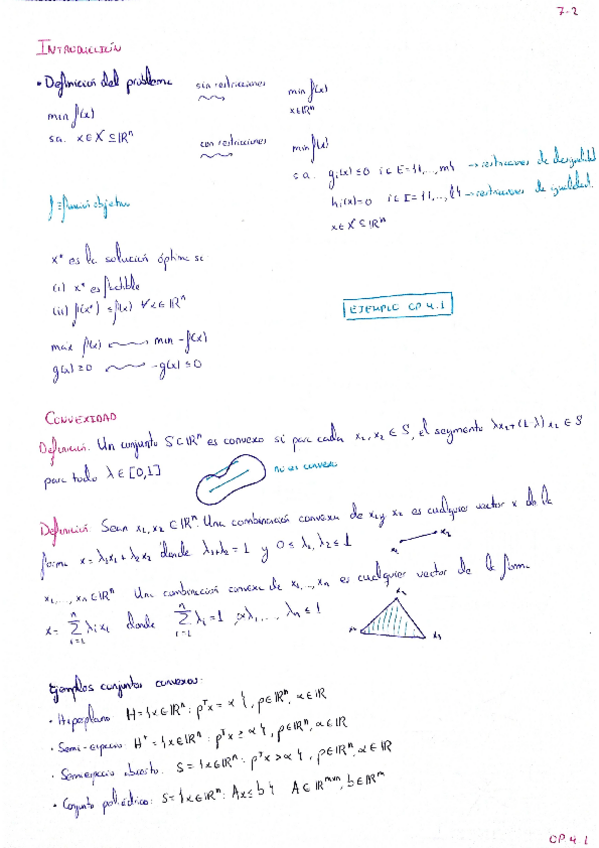 7-2
INTRODUCCIÓN
• Definición del problema
sin restricciones
min f(x)
x∈ℝⁿ
min f(x)
s.a. x∈X⊆ℝⁿ
con restricciones
min f(x)
s.a. gᵢ(x)≤0 i∈E={1,...,m} → restricciones de desigualdad
hᵢ(x)=0 i∈I={1,...,l} → restricciones de igualdad.
x∈X⊆ℝⁿ
f ≡ función objetivo
x* es la solución óptima si
(i) x* es factible
(ii) f(x*) ≤ f(x) ∀x∈ℝⁿ
EJEMPLO CP 4.1
max f(x) ⟿ min -f(x)
g(x)≥0 ⟿ -g(x)≤0
CONVEXIDAD
Definición. Un conjunto S⊂ℝⁿ es convexo si para cada x₁,x₂ ∈ S, el segmento λx₁+(1-λ)x₂ ∈ S
para todo λ∈[0,1]
no es convexo
Definición Sean x₁,x₂ ∈ℝⁿ. Una combinación convexa de x₁ y x₂ es cualquier vector x de la
forma x=λ₁x₁+λ₂x₂ donde λ₁+λ₂=1 y 0≤λ₁,λ₂≤1
x₁ x₂
x₁,...,xₙ∈ℝⁿ Una combinación convexa de x₁,...,xₙ es cualquier vector de la forma
x= ∑ᵢ₌₁ⁿ λᵢxᵢ donde ∑ᵢ₌₁ⁿ λᵢ=1 0≤λ₁,...,λₙ≤1
Ejemplos conjuntos convexos:
· Hiperplano H={x∈ℝⁿ: pᵀx=α}, p∈ℝⁿ, α∈ℝ
· Semi-espacio H⁺={x∈ℝⁿ: pᵀx≥α}, p∈ℝⁿ, α∈ℝ
· Semiespacio abierto. S={x∈ℝⁿ: pᵀx>α}, p∈ℝⁿ, α∈ℝ
· Conjunto poliédrico: S={x∈ℝⁿ: Ax≤b} A∈ℝᵐˣⁿ, b∈ℝᵐ
CP 4 1